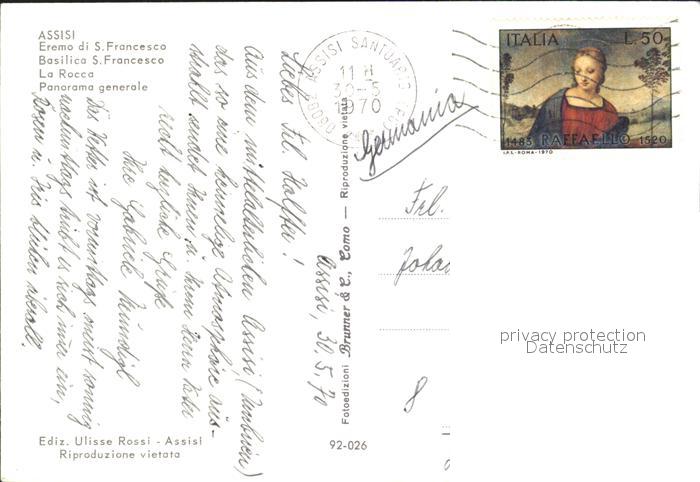 ASSISI
Eremo di S. Francesco
Basilica S. Francesco
La Rocca
Panorama generale
Assisi, 30.5.70
Liebes Frl. Halffter!
Aus dem mittelalterlichen Assisi (Umbrien)
das so eine heimelige Atmosphäre aus-
strahlt sendet Ihnen u. Ihrem Herrn Vater
recht herzliche Grüße
Ihre Gabriele
Das Wetter ist vormittags meist sonnig
nachmittags trübt es sich immer ein,
Rosen u. Iris blühen überall.
Ediz. Ulisse Rossi - Assisi
Riproduzione vietata
Fotoedizioni Brunner & C., Como — Riproduzione vietata
92-026
ASSISI SANTUARIO
11 H
30-5
1970
ITALIA L. 50
1483 RAFFAELLO 1520
I.P.S.-ROMA-1970
Germania
Frl.
Joha
8
privacy protection
Datenschutz